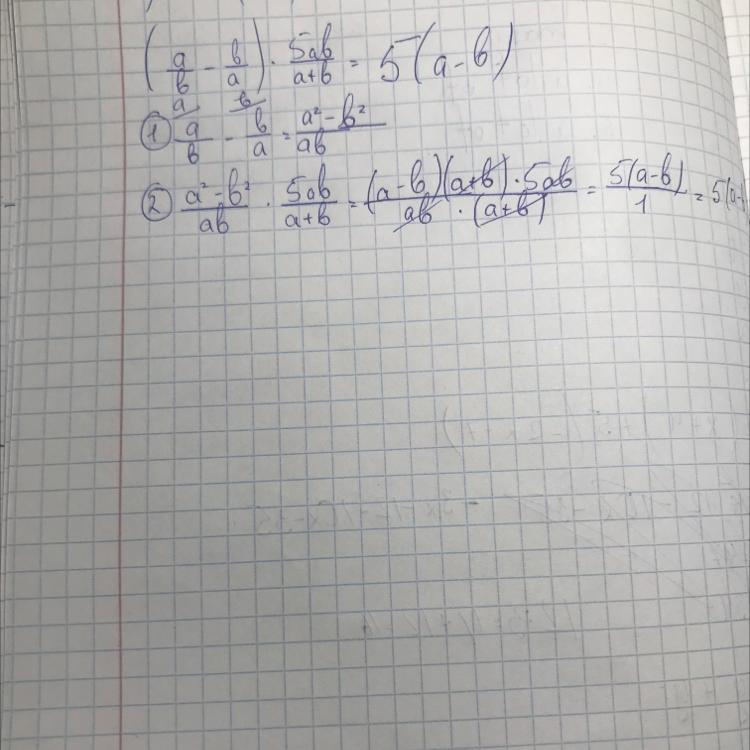 (a/b - b/a) · 5ab/a+b = 5(a-b)
① a/b - b/a = a² - b²/ab
② a² - b²/ab · 5ab/a+b = (a-b)(a+b) · 5ab/ab · (a+b) = 5(a-b)/1 = 5(a-